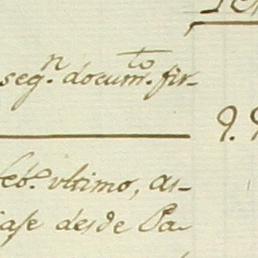 seg.n docum.to fir-
feb.o vltimo, as-
iase desde Pa-
9.